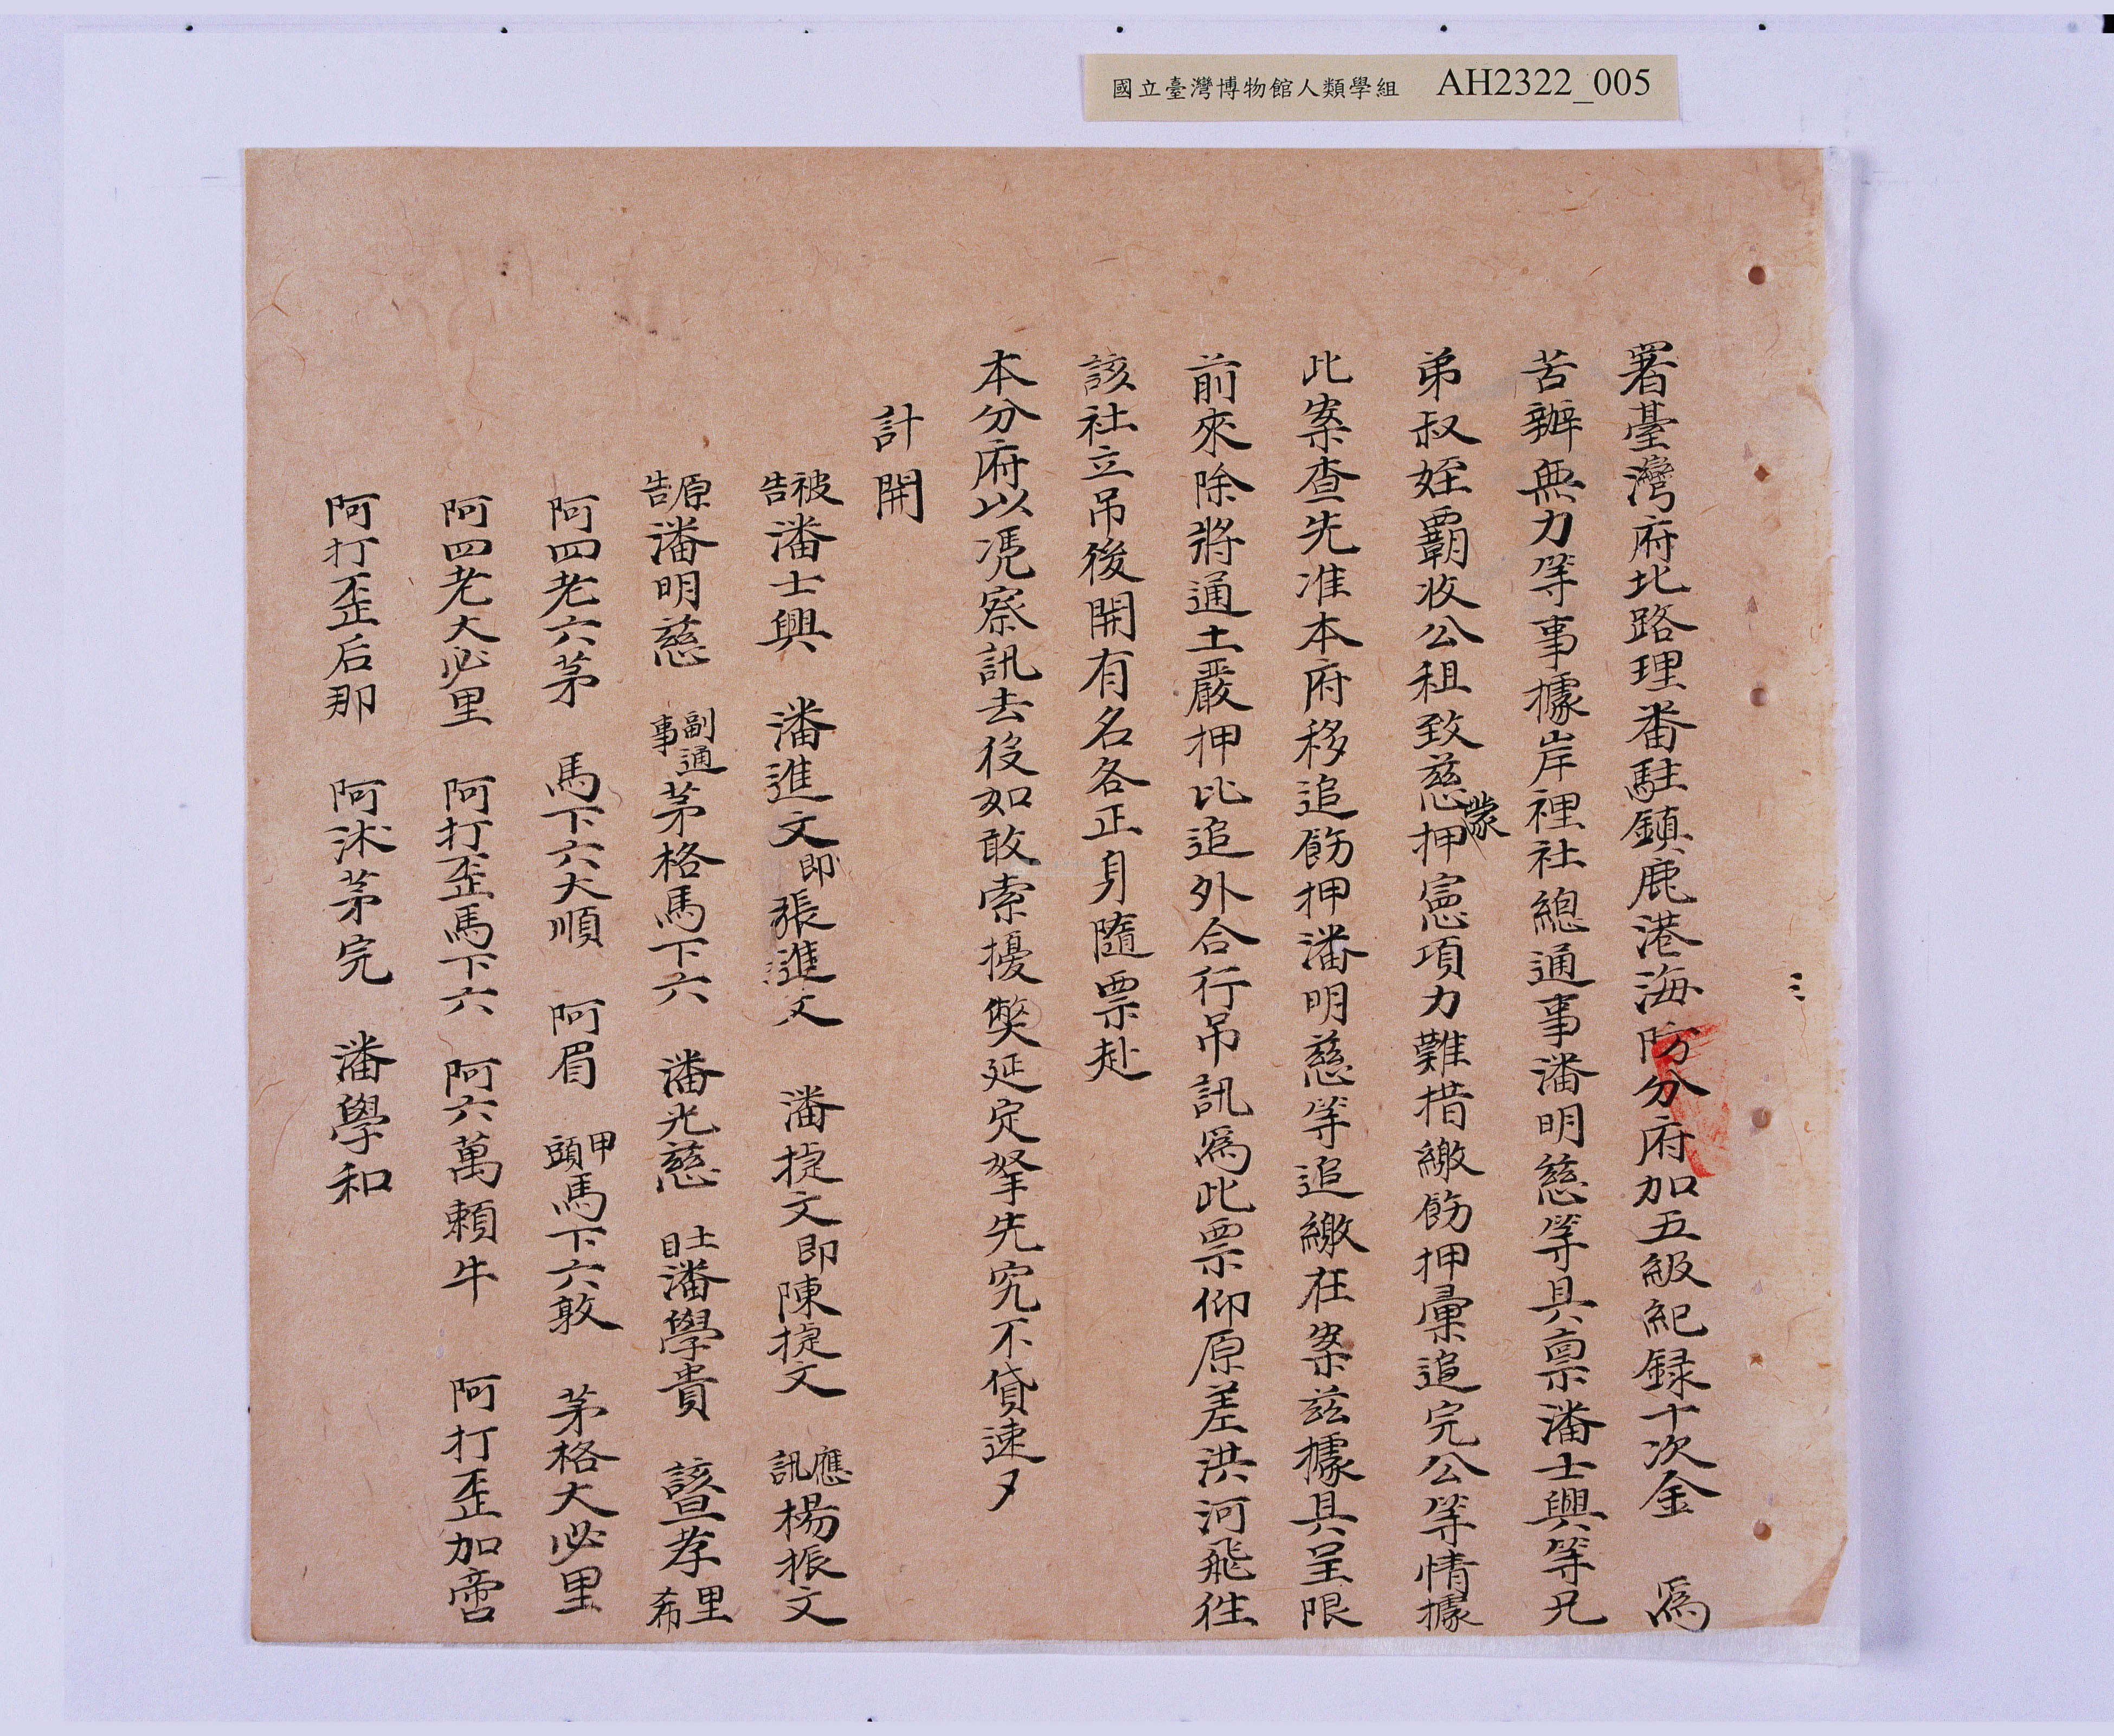 國立臺灣博物館人類學組 AH2322_005
署臺灣府北路理番駐鎮鹿港海防分府加五級紀録十次金 為
苦辦無力等事據岸裡社總通事潘明慈等具稟潘士興等兄
弟叔姪霸收公租致慈蒙押憲項力難措繳飭押彙追完公等情據
此案查先准本府移追飭押潘明慈等追繳在案兹據具呈限
前來除將通土嚴押比追外合行吊訊為此票仰原差洪河飛往
該社立吊後開有名各正身隨票赴
本分府以凴察訊去役如敢索擾獘延定拏先究不貸速夕
計開
被告潘士興 潘進文即張進文 潘捷文即陳捷文 應訊楊振文
原告潘明慈 副通事茅格馬下六 潘光慈 土目潘學貴 孝里希
阿四老六茅 馬下六大順 阿眉 甲頭馬下六敦 茅格大必里
阿四老大必里 阿打歪馬下六 阿六萬賴牛 阿打歪加
阿打歪后那 阿沭茅完 潘學和